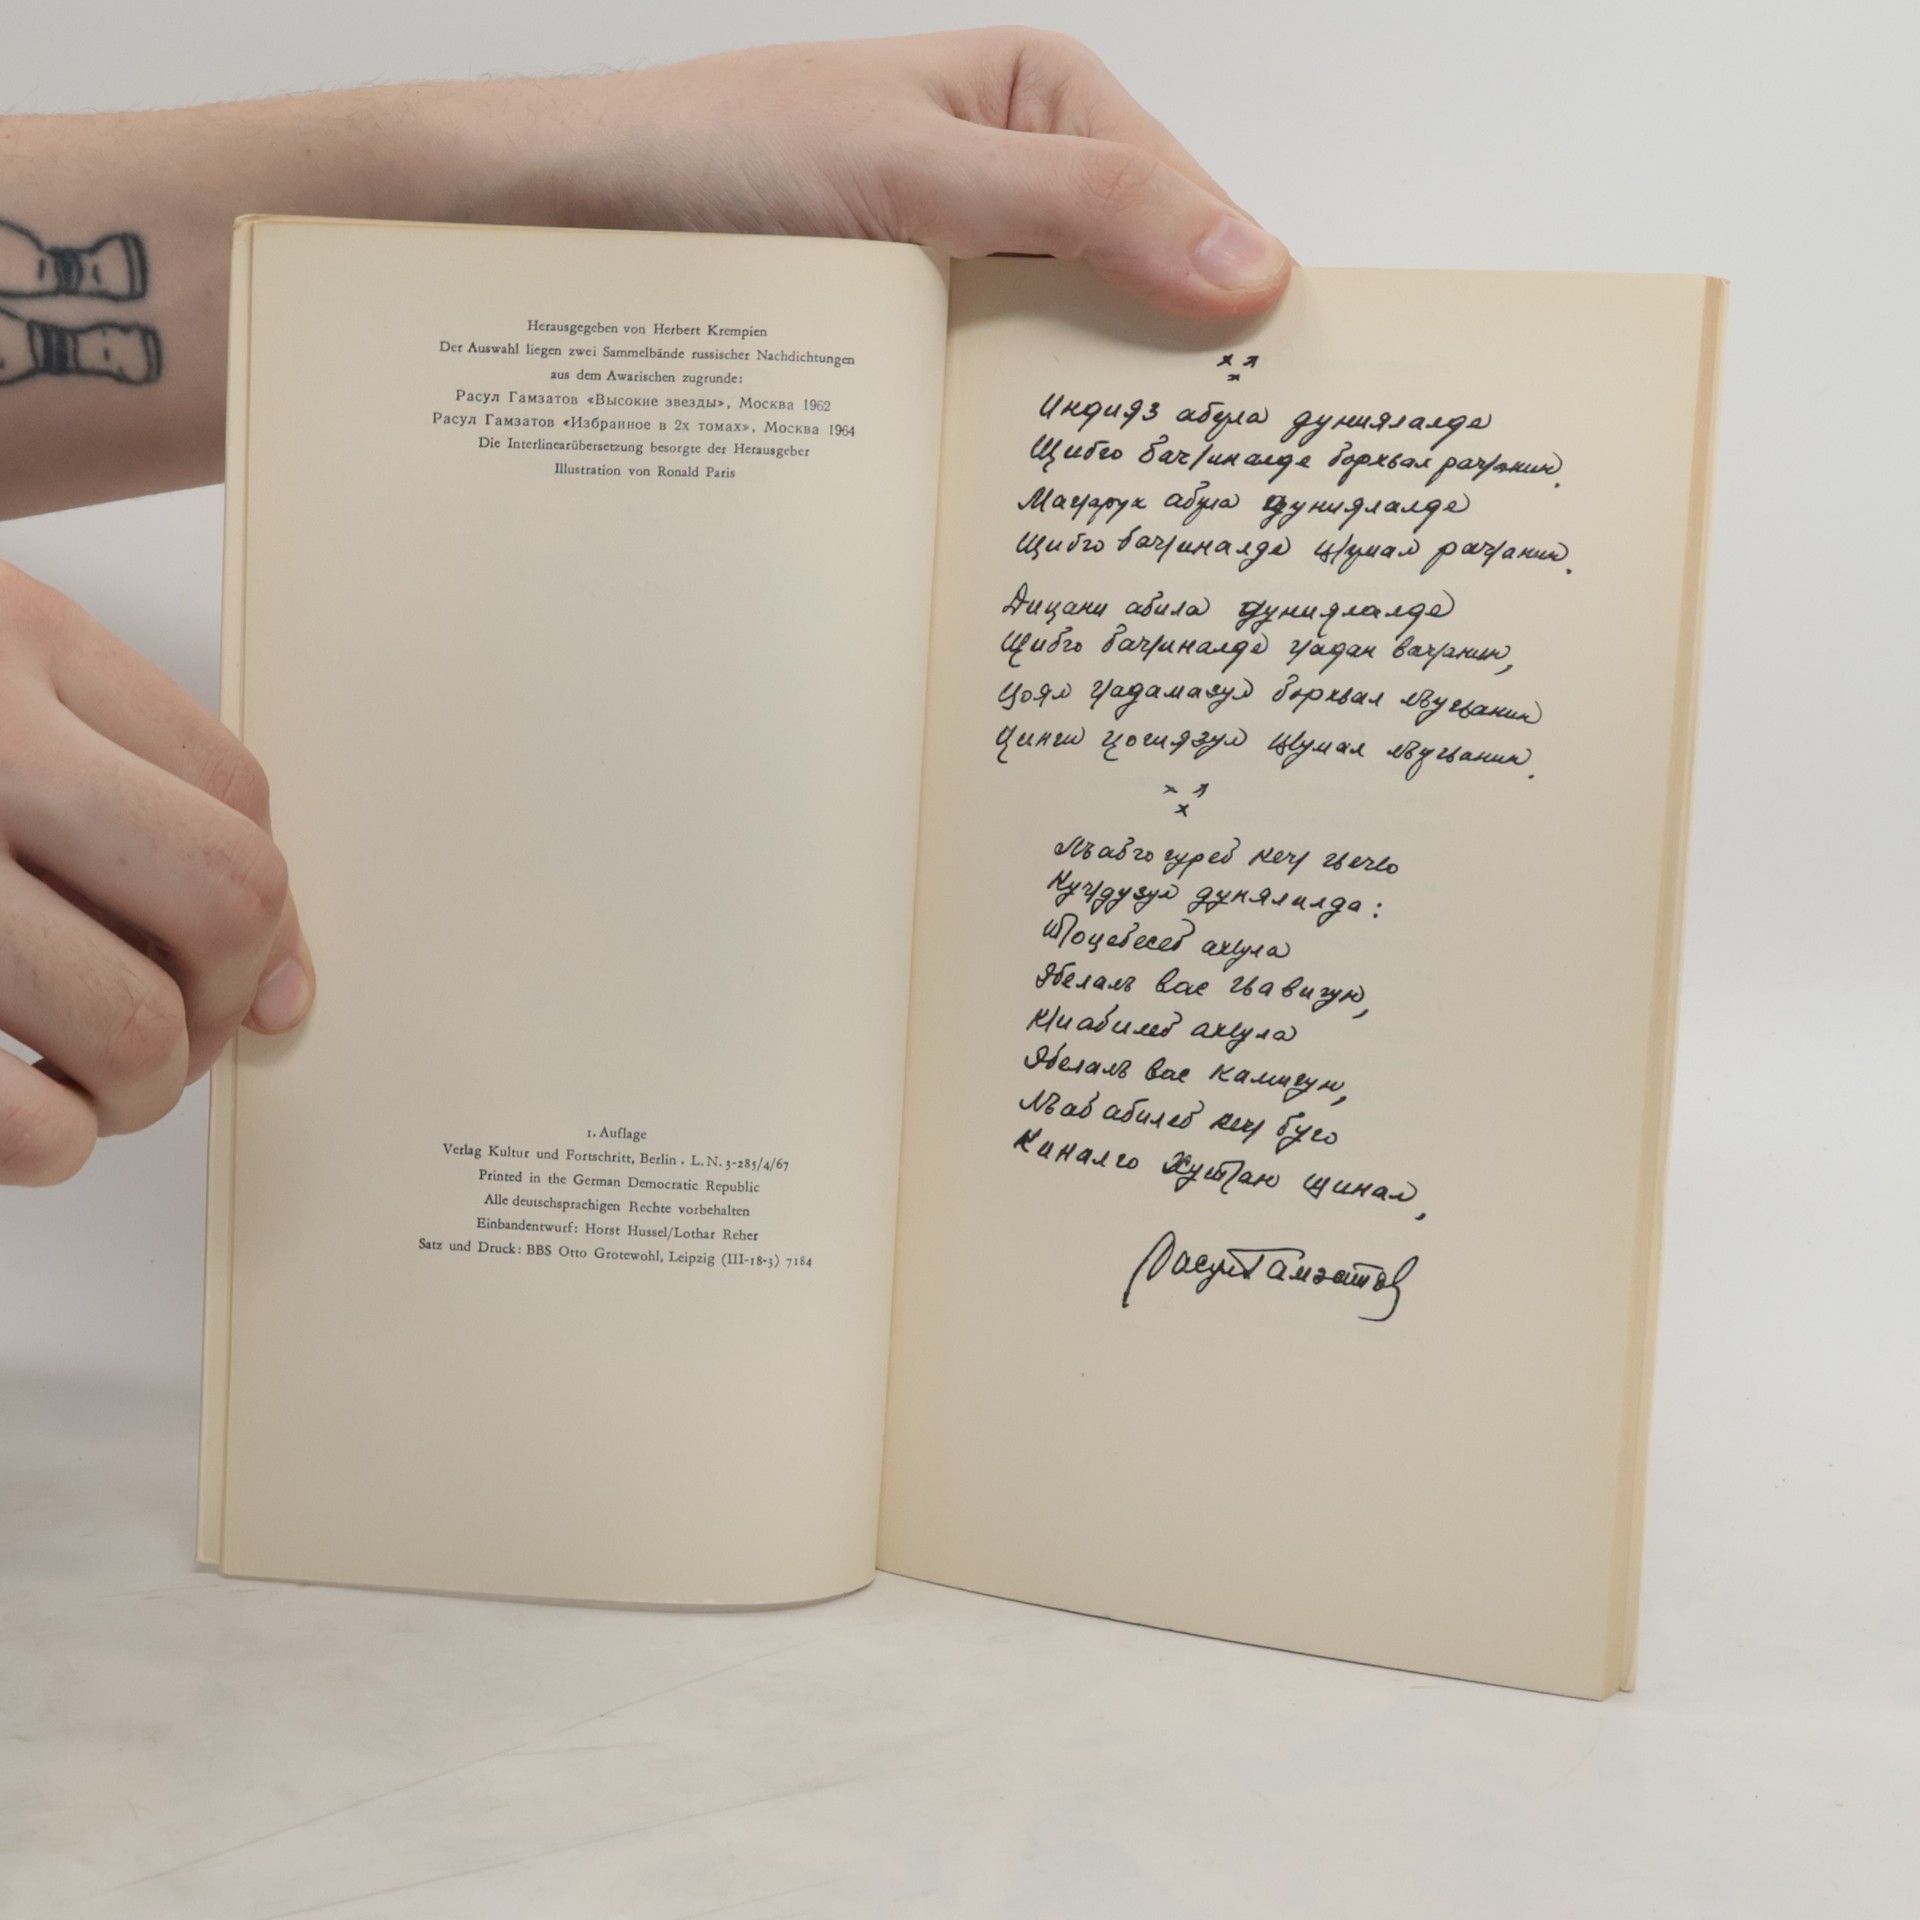 Herausgegeben von Herbert Krempien
Der Auswahl liegen zwei Sammelbände russischer Nachdichtungen
aus dem Awarischen zugrunde:
Расул Гамзатов «Высокие звезды», Москва 1962
Расул Гамзатов «Избранное в 2х томах», Москва 1964
Die Interlinearübersetzung besorgte der Herausgeber
Illustration von Ronald Paris
1. Auflage
Verlag Kultur und Fortschritt, Berlin . L. N. 3-285/4/67
Printed in the German Democratic Republic
Alle deutschsprachigen Rechte vorbehalten
Einbandentwurf: Horst Hussel/Lothar Reher
Satz und Druck: BBS Otto Grotewohl, Leipzig (III-18-3) 7184
Индияз абула дуниялалде
Щибго бачӏиналде борхьал рачӏанин.
абула дуниялалде
Щибго бачӏиналде цӏумал рачӏанин.
Дицани абила дуниялалде
Щибго бачӏиналде гӏадан вачӏанин,
Цоял гӏадамазул борхьал лъугьанин
Цинги цогиязул цӏумал лъугьанин.
Лъабго гуреб кечӏ гьечӏо
Кучӏдузул дунялалда:
Тӏоцебесеб ахӏула
Эбелалъ вас гьавигун,
Кӏиабилеб ахӏула
Эбелалъ вас камигун,
Лъабабилеб кечӏ буго
Киналго хутӏан щинал,
Расул Гамзатов